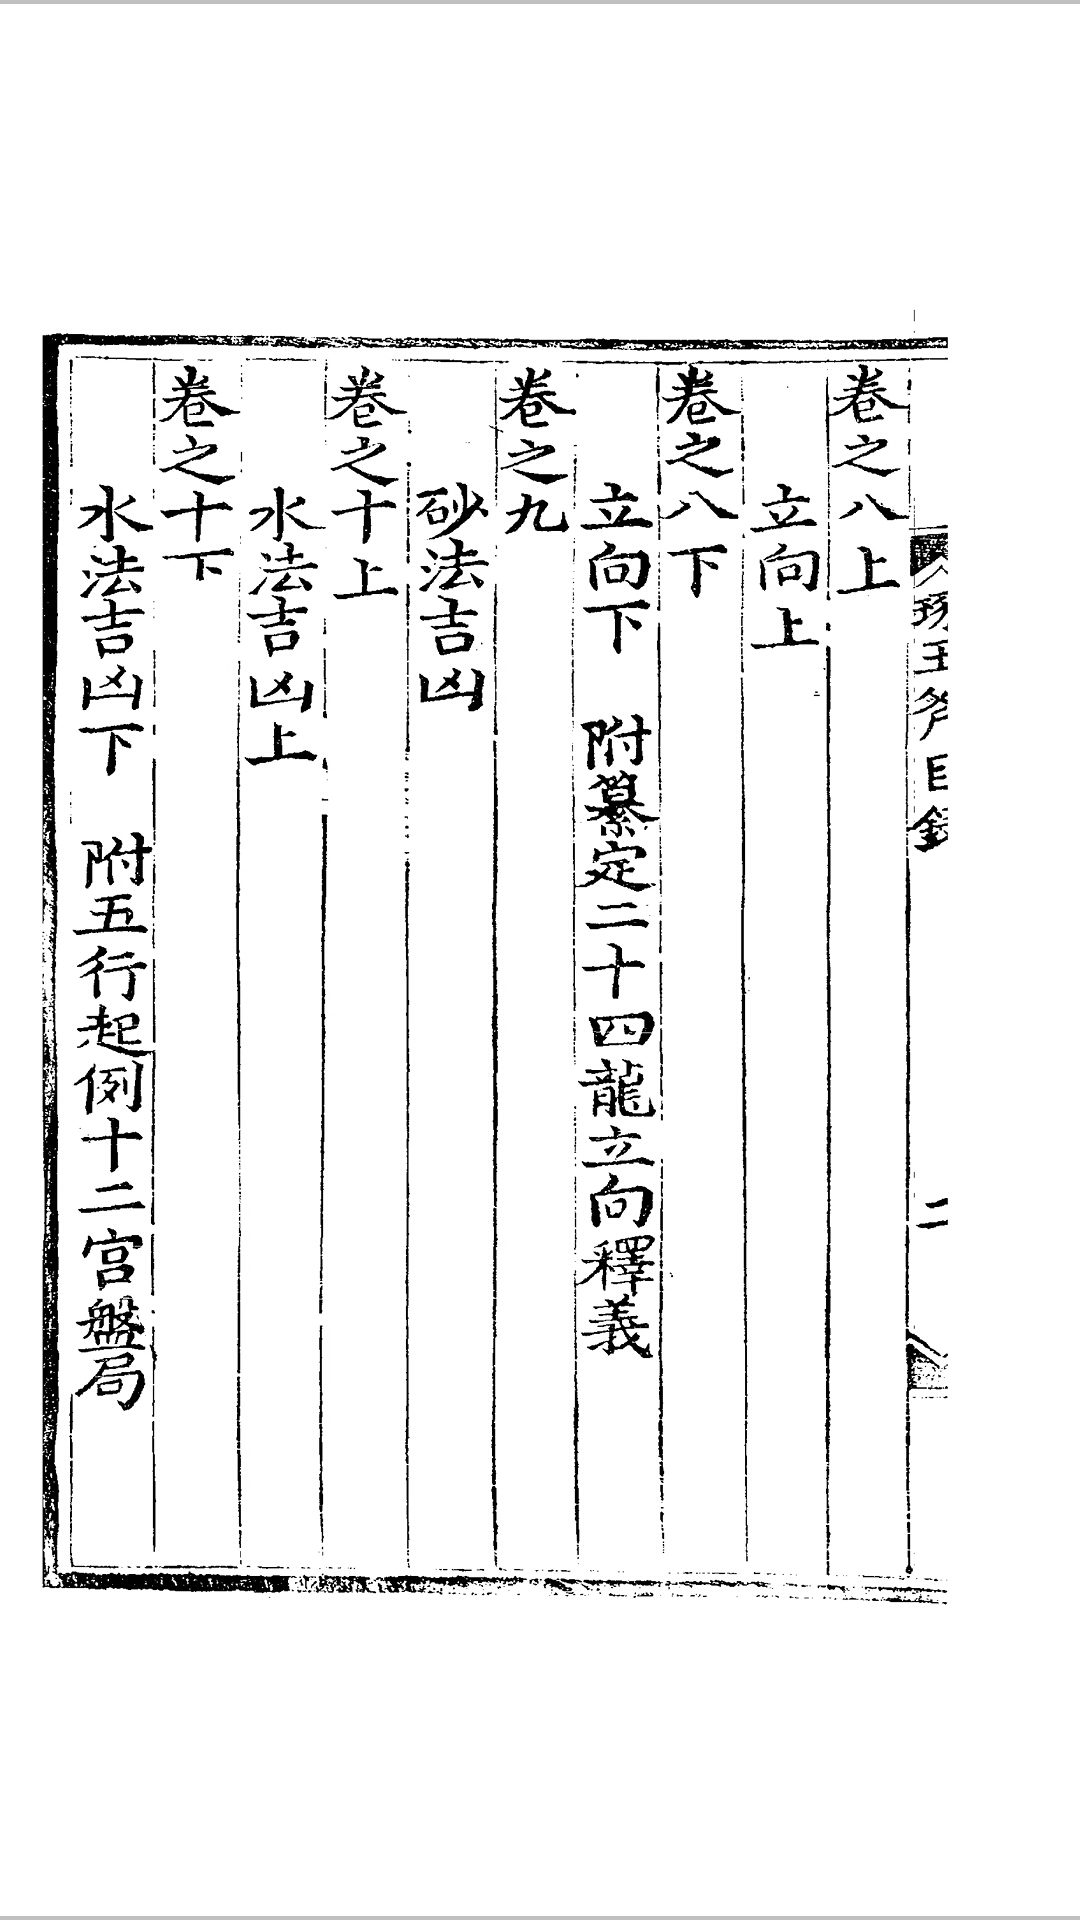 琢玉斧目錄
二
卷之八上
立向上
卷之八下
立向下　附纂定二十四龍立向釋義
卷之九
砂法吉凶
卷之十上
水法吉凶上
卷之十下
水法吉凶下　附五行起例十二宮盤局